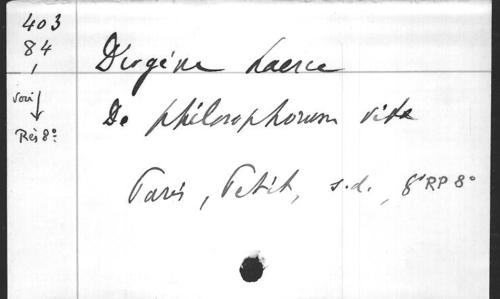 403
84
,
voir
Rés 8°
Diogène Laerce
De philosophorum vita
Paris, Petit, s.d., 8° RP 8°